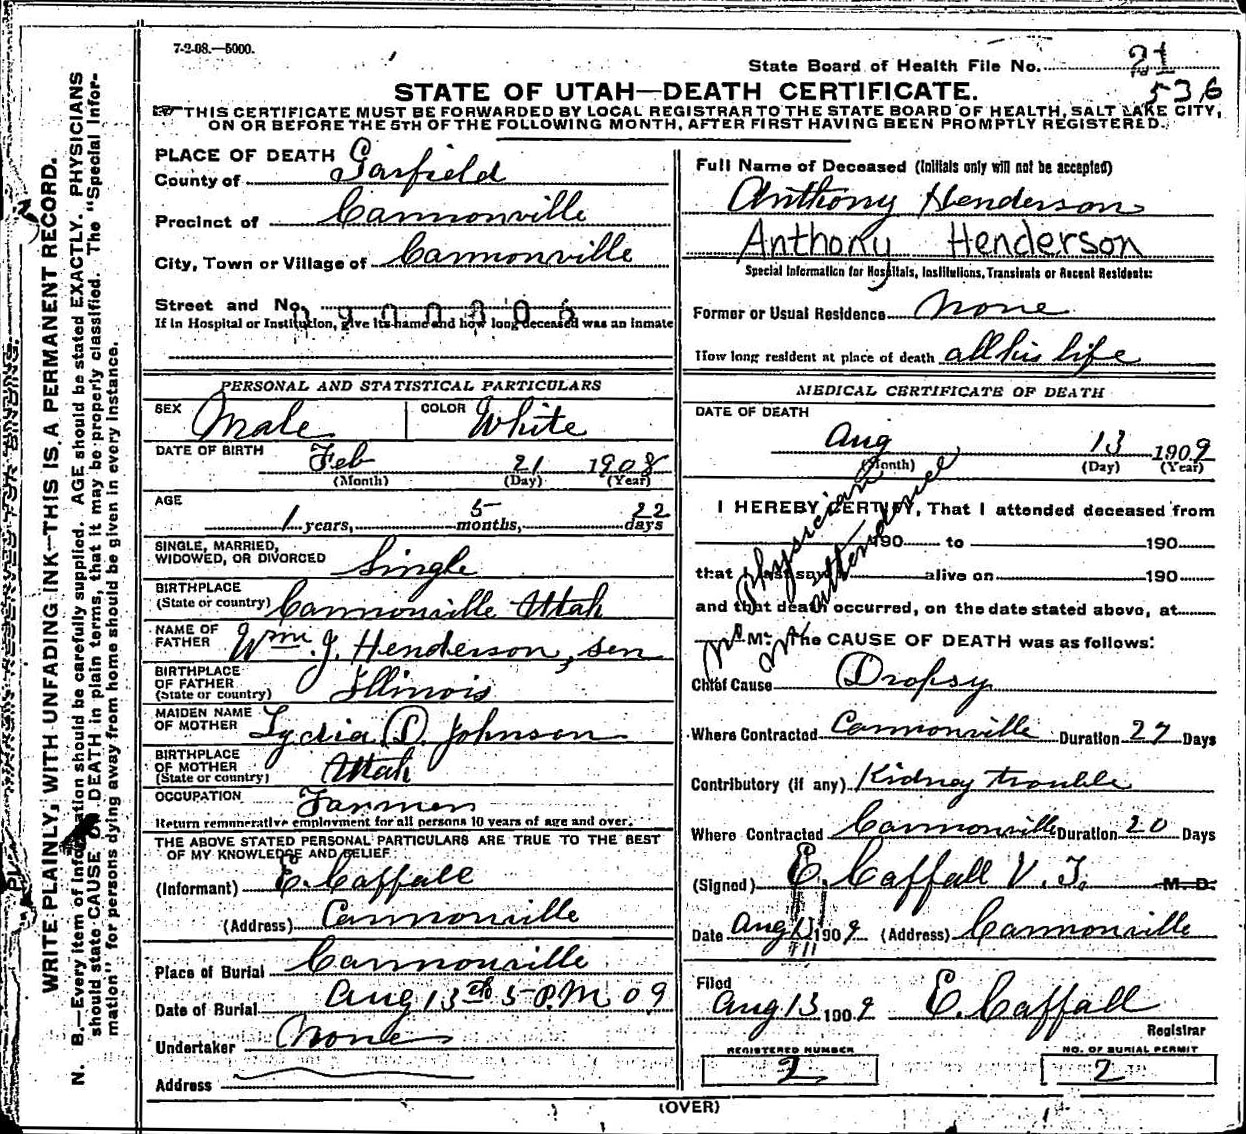 7-2-08.—5000.
State Board of Health File No. 21
536
STATE OF UTAH—DEATH CERTIFICATE.
THIS CERTIFICATE MUST BE FORWARDED BY LOCAL REGISTRAR TO THE STATE BOARD OF HEALTH, SALT LAKE CITY,
ON OR BEFORE THE 5TH OF THE FOLLOWING MONTH, AFTER FIRST HAVING BEEN PROMPTLY REGISTERED.
WRITE PLAINLY, WITH UNFADING INK—THIS IS A PERMANENT RECORD.
N. B.—Every item of information should be carefully supplied. AGE should be stated EXACTLY. PHYSICIANS
should state CAUSE OF DEATH in plain terms, that it may be properly classified. The "Special Infor-
mation" for persons dying away from home should be given in every instance.
PLACE OF DEATH
County of Garfield
Precinct of Cannonville
City, Town or Village of Cannonville
Street and No.
If in Hospital or Institution, give its name and how long deceased was an inmate
PERSONAL AND STATISTICAL PARTICULARS
SEX Male COLOR White
DATE OF BIRTH Feb 21 1908
(Month) (Day) (Year)
AGE
1 years, 5 months, 22 days
SINGLE, MARRIED,
WIDOWED, OR DIVORCED Single
BIRTHPLACE
(State or country) Cannonville Utah
NAME OF
FATHER Wm. J. Henderson, sen
BIRTHPLACE
OF FATHER
(State or country) Illinois
MAIDEN NAME
OF MOTHER Lydia D. Johnson
BIRTHPLACE
OF MOTHER
(State or country) Utah
OCCUPATION Farmer
Return remunerative employment for all persons 10 years of age and over.
THE ABOVE STATED PERSONAL PARTICULARS ARE TRUE TO THE BEST
OF MY KNOWLEDGE AND BELIEF
(Informant) E. Caffall
(Address) Cannonville
Place of Burial Cannonville
Date of Burial Aug 13th 5 P.M 09
Undertaker None
Address
Full Name of Deceased (Initials only will not be accepted)
Anthony Henderson
Anthony Henderson
Special Information for Hospitals, Institutions, Transients or Recent Residents:
Former or Usual Residence None
How long resident at place of death all his life
MEDICAL CERTIFICATE OF DEATH
DATE OF DEATH
Aug 13 1909
(Month) (Day) (Year)
I HEREBY CERTIFY, That I attended deceased from
190 to 190
that I last saw alive on 190
and that death occurred, on the date stated above, at
M. The CAUSE OF DEATH was as follows:
No Physician
in attendance
Chief Cause Dropsy
Where Contracted Cannonville Duration 27 Days
Contributory (if any) Kidney trouble
Where Contracted Cannonville Duration 20 Days
(Signed) E. Caffall V. T. M. D.
Date Aug 13 1909 (Address) Cannonville
Filed
Aug 13 1909 E. Caffall
Registrar
REGISTERED NUMBER
2
NO. OF BURIAL PERMIT
2
(OVER)